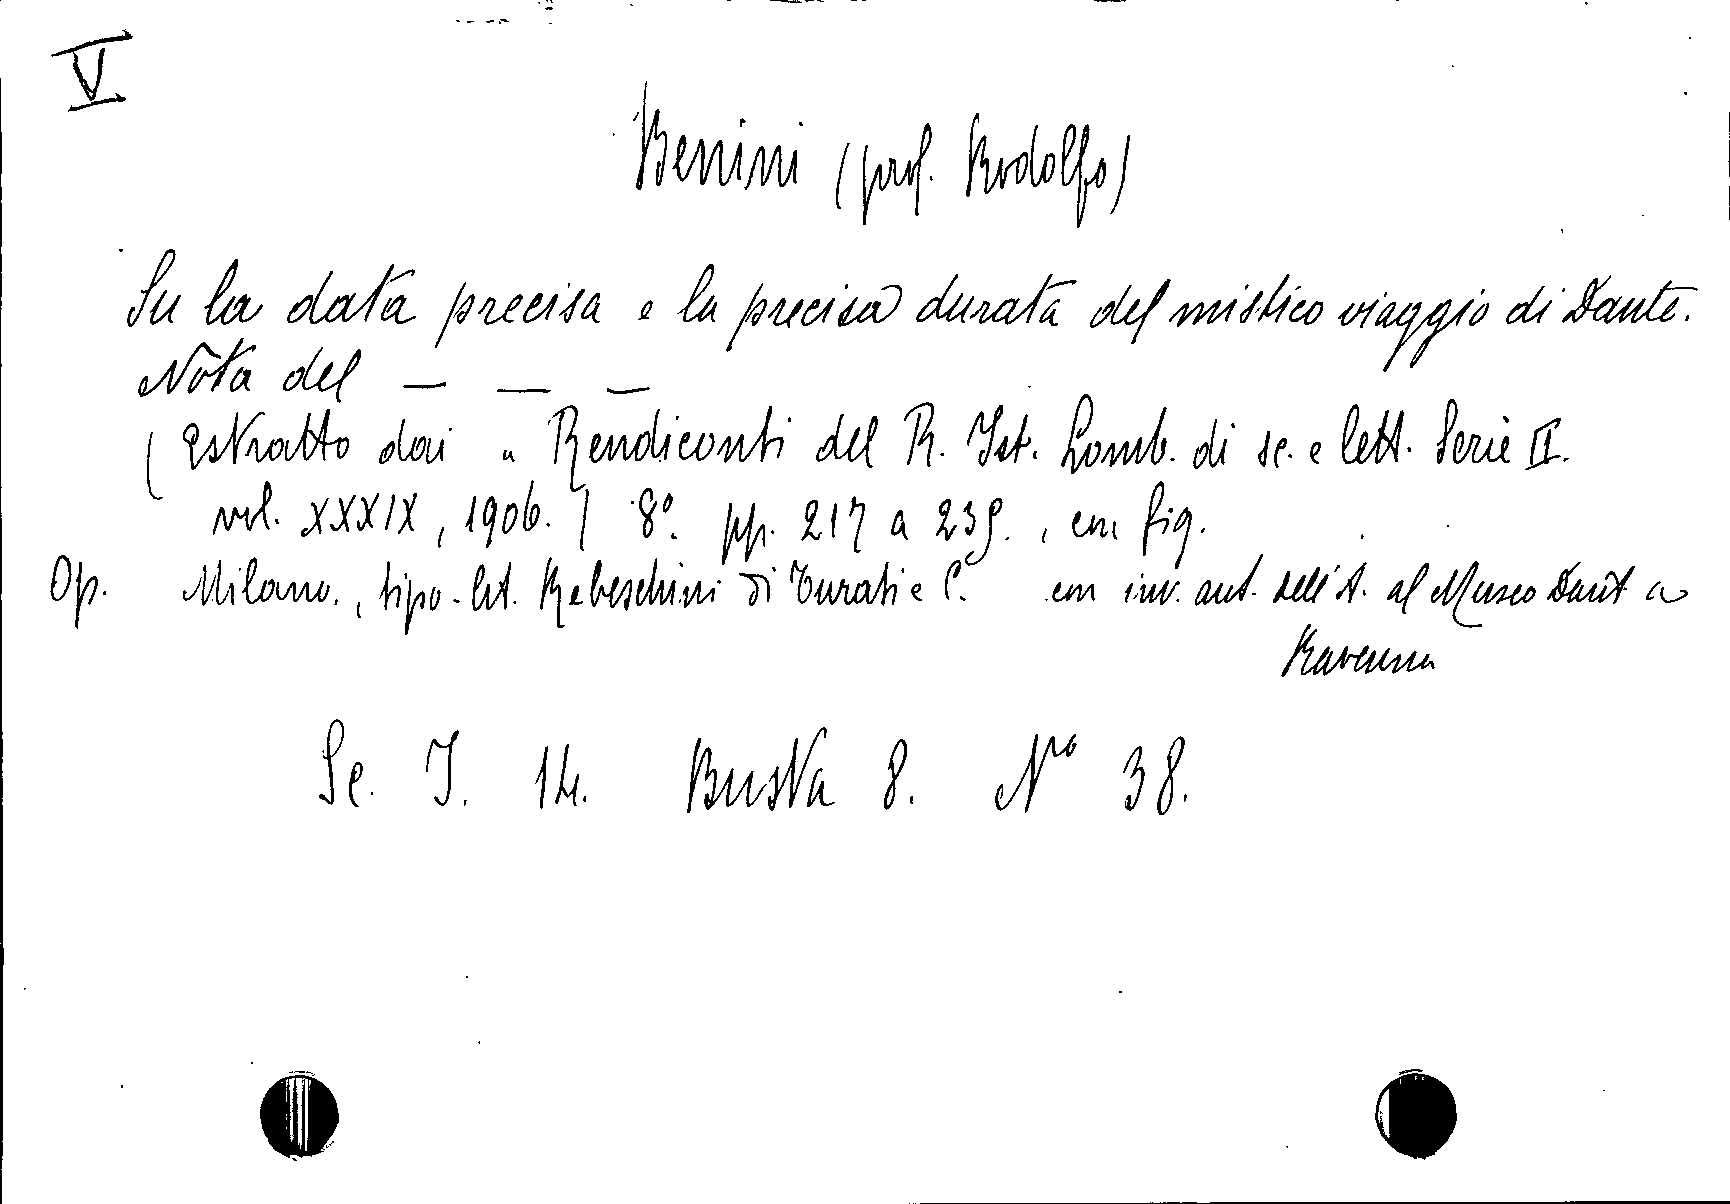 V
Benini (prof. Rodolfo)
Su la data precisa e la precisa durata del mistico viaggio di Dante.
Nota del — — —
(Estratto dai " Rendiconti del R. Ist. Lomb. di sc. e lett. Serie II.
vol. XXXIX, 1906.) 8º. pp. 217 a 239., con fig.
Op. Milano., tipo-lit. Rebeschini di Turati e C. con inv. aut. dell'A. al Museo Dant a
Ravenna
Sc. I. 14. Busta 8. Nº 38.